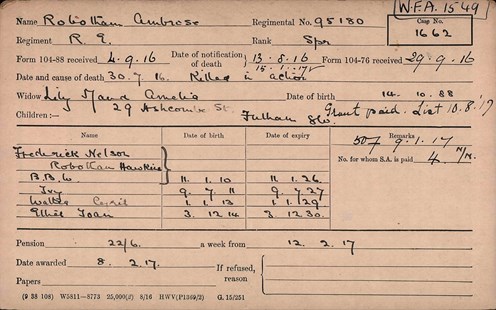 W.F.A. 1549
Name Robotham Ambrose Regimental No. 95180 Case No. 1662
Regiment R.E. Rank Spr
Form 104-88 received 4.9.16 Date of notification of death 13.8.16 15.1.17 Form 104-76 received 29.9.16
Date and cause of death 30.7.16. Killed in action
Widow Lily Maud Amelia Date of birth 14.10.88
Children:— 29 Ashcombe St. Fulham SW. Grant paid. List 10.8.17
Name Date of birth Date of expiry 507 Remarks 9.1.17
No. for whom S.A. is paid 4 N/M.
Frederick Nelson
Robotham Hawkins
B.B.W. 11.1.10 11.1.26
Ivy 9.7.11 9.7.27
Walter Cyril 1.1.13 1.1.29
Ethel Joan 3.12.14 3.12.30
Pension 22/6. a week from 12.2.17
Date awarded 8.2.17. If refused, reason
Papers
(9 38 108) W5811—8773 25,000(2) 8/16 HWV(P1369/2) G.15/251